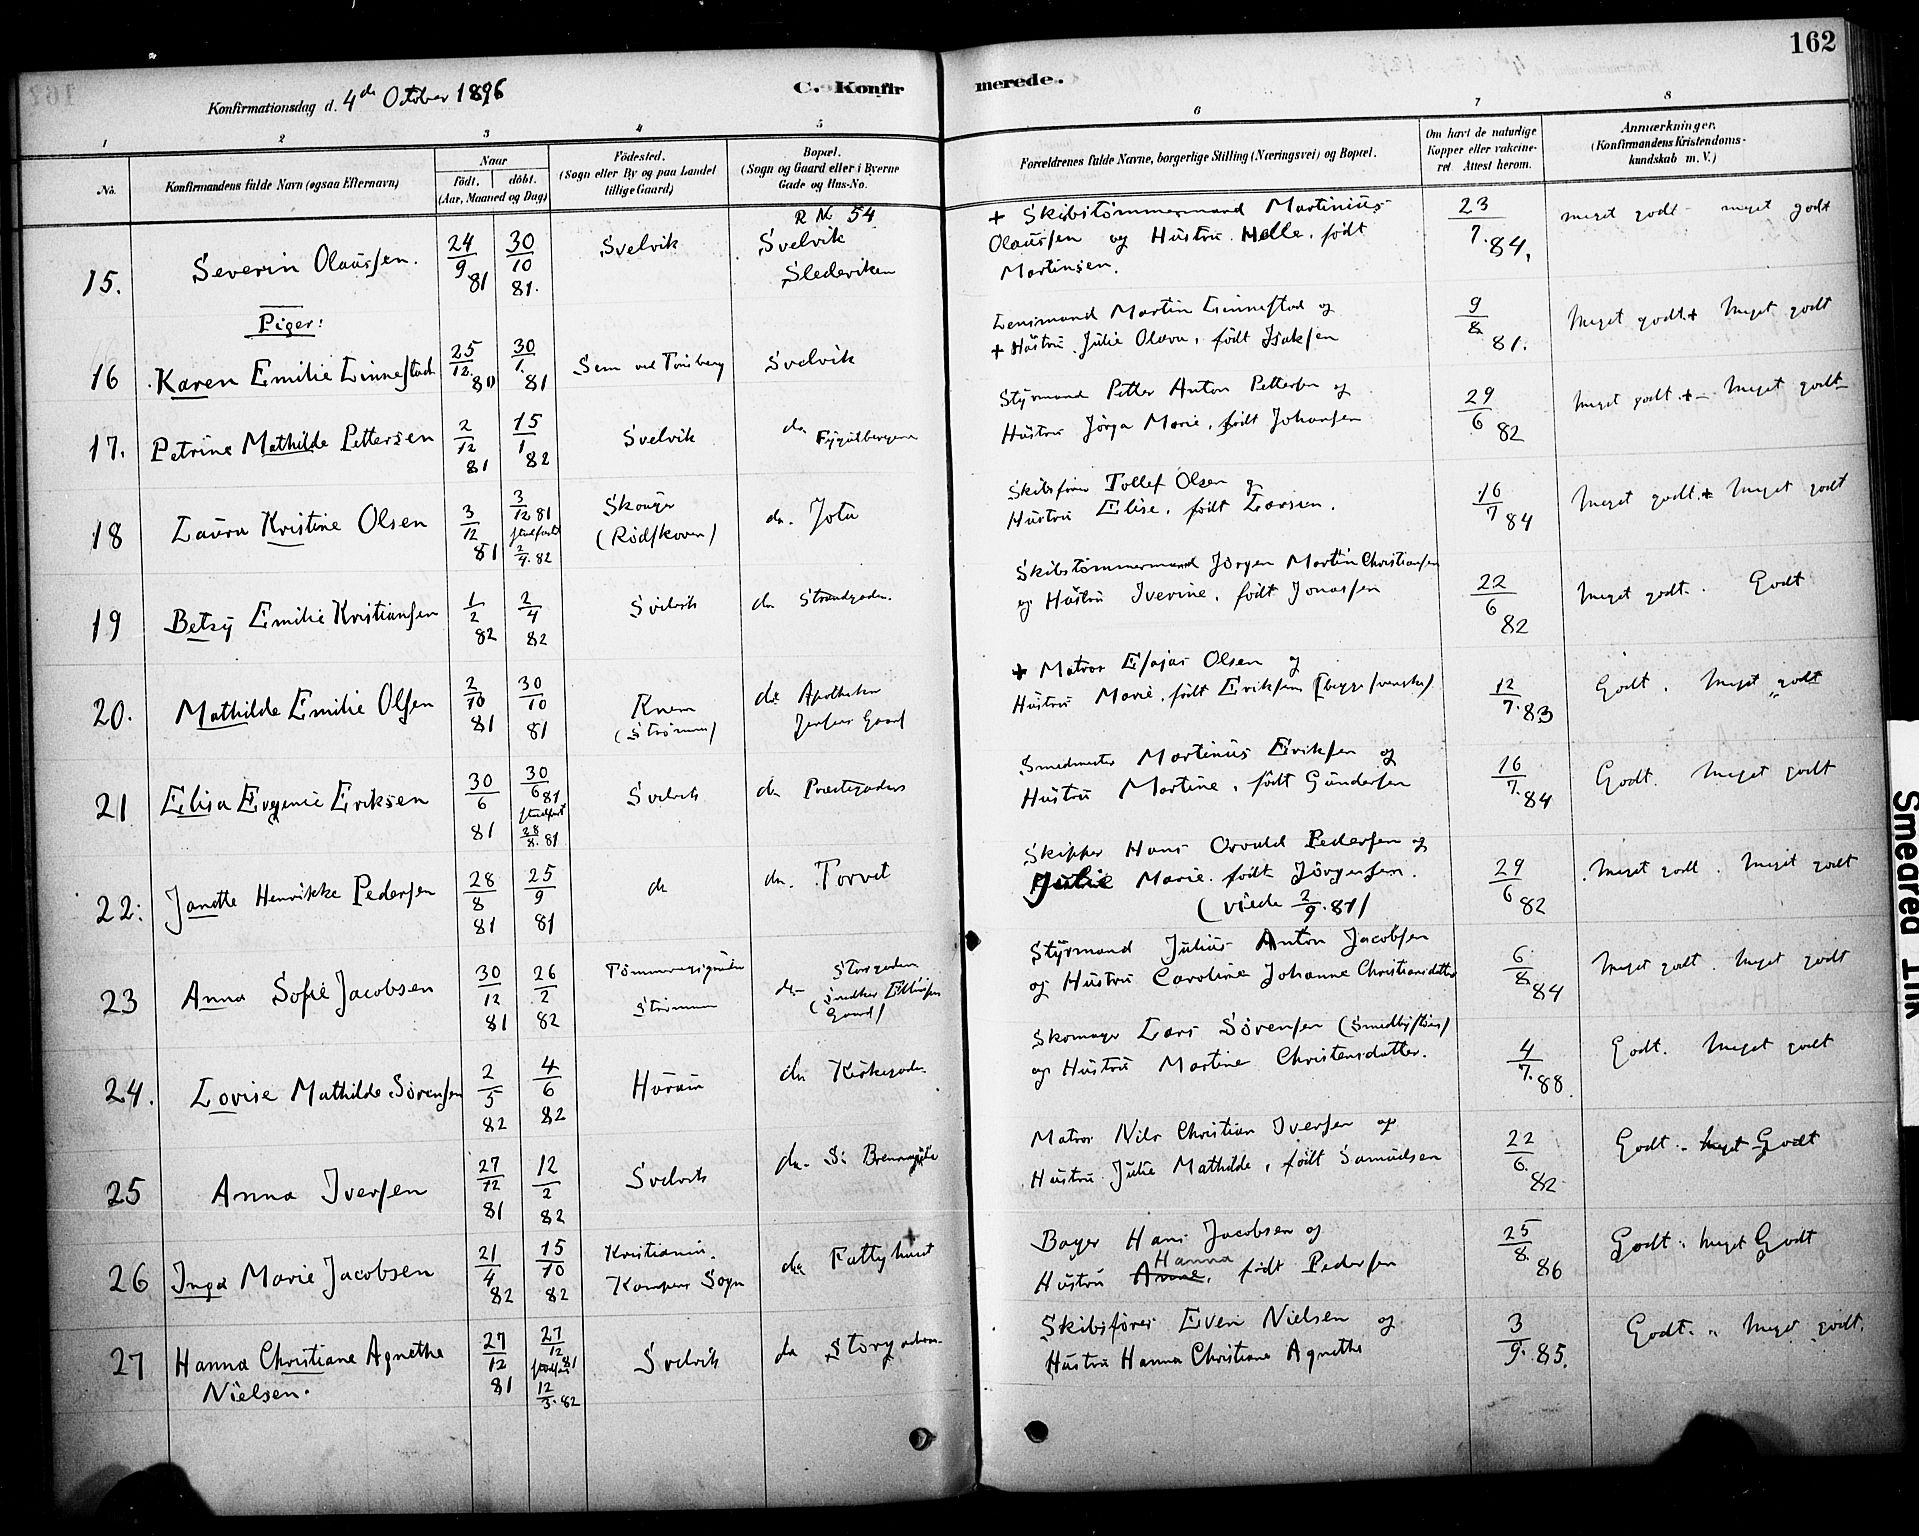 162
Konfirmationsdag d. 4de October 1896
C. Konfirmerede.
1 2 3 4 5 6 7 8
No.
Konfirmandens fulde Navn (ogsaa Efternavn)
Naar
født. døbt.
(Aar, Maaned og Dag)
Fødested.
(Sogn eller By og paa Landet
tillige Gaard)
Bopæl.
(Sogn og Gaard eller i Byerne
Gade og Hus-No.
Forældrenes fulde Navne, borgerlige Stilling (Næringsvei) og Bopæl.
Om havt de naturlige
Kopper eller vakcine-
ret Attest herom.
Anmærkninger.
(Konfirmandens Kristendoms-
kundskab m. V.)
15. Severin Olaussen. 24/9 81 30/10 81. Svelvik
R No 54
Svelvik
Sledeviken
+ Skibstømmermand Martinius
Olaussen og Hustru Helle, født
Martinsen.
23/7.84. meget godt - meget godt
Piger:
16 Karen Emilie Linnestad 25/12. 80 30/1. 81 Sem ved Tønsberg Svelvik
Lensmand Martin Linnestad og
+ Hustru Julie Olava, født Isaksen
9/8 81. Meget godt + Meget godt
17. Petrine Mathilde Pettersen 2/12 81 15/1 82 Svelvik do
Styrmand Petter Anton Pettersen og
Hustru Jørga Marie, født Johansen
29/6 82 Meget godt + Meget godt
18 Laura Kristine Olsen 3/12 81 3/12 81 2/4. 82
Skouger
(Rødskoven)
do. Jota
Skibsfører Tollef Olsen og
Hustru Elise, født Larsen.
16/7 84 Meget godt + Meget godt
19 Betzy Emilie Kristiansen 1/2 82 2/4 82 Svelvik do Strandgaden.
Skibstømmermand Jørgen Martin Christiansen
og Hustru Iverine, født Jonassen
22/6 82 Meget godt. Godt
20. Mathilde Emilie Olsen 2/10 81 30/10 81
Knem
(Strømm)
do. Apotheker
Jensens Gaard
+ Matros Esajas Olsen og
Hustru Marie, født Eriksen (begge svenske)
12/7.83 Godt. Meget godt
21 Elisa Evgenie Eriksen 30/6 81 30/6 81 28/8. 81 Svelvik do Prestegaden
Smedmester Martinus Eriksen og
Hustru Martine, født Gundersen
16/7.84 Godt. Meget godt
22. Janette Henrikke Pedersen 28/8 81 25/9 81 do do. Torvet
Skipper Hans Osvald Pedersen og
Julie Marie, født Jørgensen.
(viede 2/9.81)
29/6 82 Meget godt. Meget godt
23 Anna Sofie Jacobsen 30/12 81 26/2 82
Strømm
do- Storgaden
Gaard)
Styrmand Julius Anton Jacobsen
og Hustru Caroline Johanne Christiansdatter
6/8 84 Meget godt. Meget godt
24. Lovise Mathilde Sørensen 2/5 82 4/6 82 Hurum do Kirkegaden
Skomager Lars Sørensen
og Hustru Martine Christensdatter.
4/7.88. Godt. Meget godt
25 Anna Iversen 27/12 81 12/2 82 Svelvik do.
Matros Nils Christian Iversen og
Hustru Julie Mathilde, født Samuelsen
22/6. 82 Godt. Meget Godt
26 Inga Marie Jacobsen 21/4 82 15/10 82
Kristiania.
Kampens Sogn
do Fattighuset
Bager Hans Jacobsen og
Hanna
Hustru Anne, født Pedersen
25/8. 86 Godt. Meget Godt
27 Hanna Christiane Agnethe
Nielsen.
27/12 81 27/12 81 12/3. 82 Svelvik do Storgaden.
Skibsfører Even Nielsen og
Hustru Hanna Christiane Agnethe
3/9. 85. Godt. Meget godt.
Smeared Ink